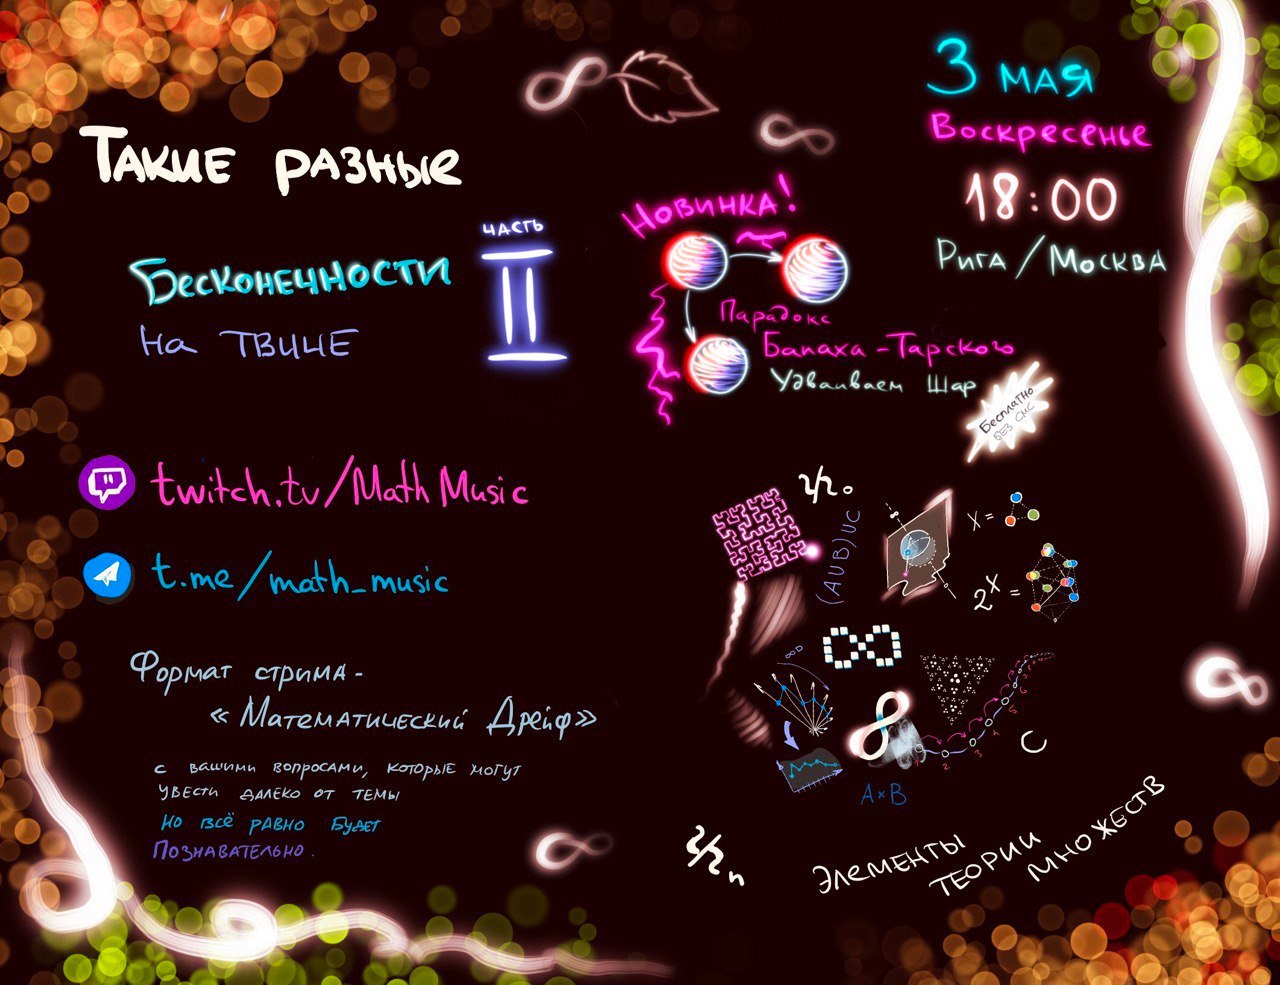 Такие разные
Бесконечности
на ТВИЧЕ
часть
II
3 мая
Воскресенье
18:00
Рига/Москва
Новинка!
Парадокс
Банаха-Тарского
Удваиваем Шар
Бесплатно
БЕЗ СМС
twitch.tv/MathMusic
t.me/math_music
Формат стрима-
«Математический Дрейф»
с вашими вопросами, которые могут
увести далеко от темы
но всё равно будет
Познавательно.
ℵ₀
(AUB)UC
X =
2^X =
∞
C
A×B
ℵₙ
Элементы
теории
множеств